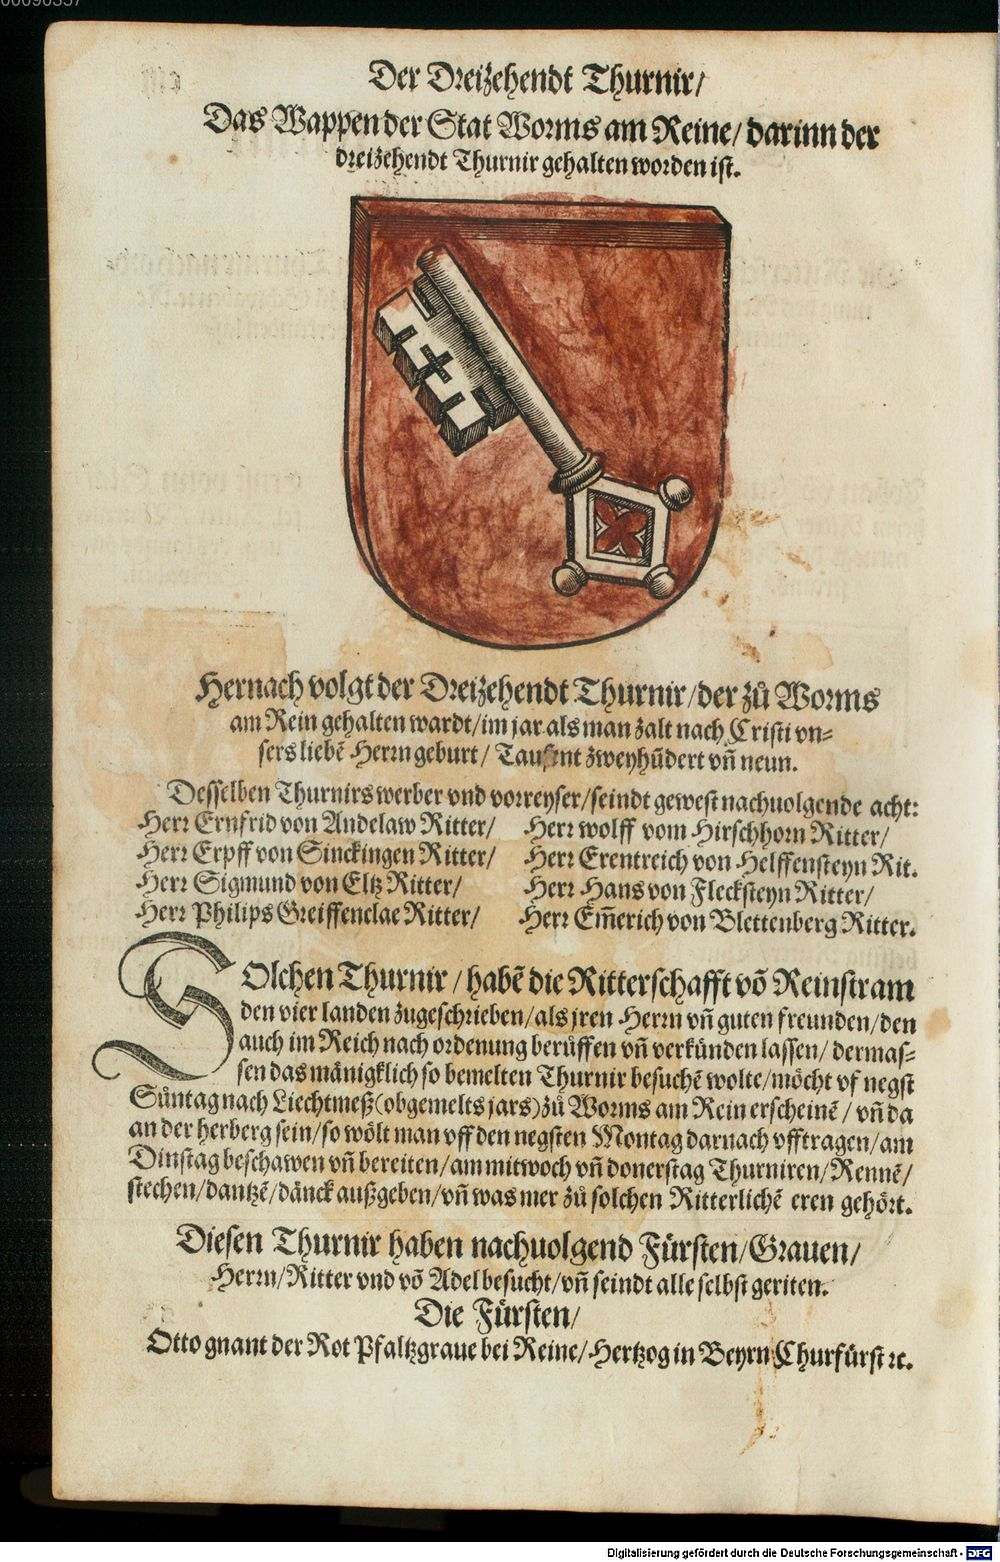 Der Dreizehendt Thurnir/
Das Wappen der Stat Worms am Reine/ darinn der
dreizehendt Thurnir gehalten worden ist.
Hernach volgt der Dreizehendt Thurnir/ der zů Worms
am Rein gehalten wardt/ im jar als man zalt nach Cristi vn⸗
sers liebē Herrn geburt/ Tausent zweyhūdert vn̄ neun.
Desselben Thurnirs werber vnd vorreyser/ seindt gewest nachuolgende acht:
Herr Ernfrid von Andelaw Ritter/ Herr wolff vom Hirschhorn Ritter/
Herr Erpff von Sinckingen Ritter/ Herr Erentreich von Helffensteyn Rit.
Herr Sigmund von Eltz Ritter/ Herr Hans von Flecksteyn Ritter/
Herr Philips Greiffenclae Ritter/ Herr Em̄erich von Blettenberg Ritter.
SOlchen Thurnir/ habē die Ritterschafft vō Reinstram
den vier landen zugeschrieben/ als jren Herrn vn̄ guten freunden/ den
auch im Reich nach ordenung berůffen vn̄ verkünden lassen/ dermas⸗
sen das mänigklich so bemelten Thurnir besuchē wolte/ möcht vf negst
Sůntag nach Liechtmeß (obgemelts jars) zů Worms am Rein erscheinē/ vn̄ da
an der herberg sein/ so wölt man vff den negsten Montag darnach vfftragen/ am
Dinstag beschawen vn̄ bereiten/ am mitwoch vn̄ donerstag Thurniren/ Rennē/
stechen/ dantzē/ dänck außgeben/ vn̄ was mer zů solchen Ritterlichē eren gehört.
Diesen Thurnir haben nachuolgend Fürsten/ Grauen/
Herrn/ Ritter vnd vō Adel besucht/ vn̄ seindt alle selbst geriten.
Die Fürsten/
Otto gnant der Rot Pfaltzgraue bei Reine/ Hertzog in Beyrn Churfürst ꝛc.
Digitalisierung gefördert durch die Deutsche Forschungsgemeinschaft - DFG